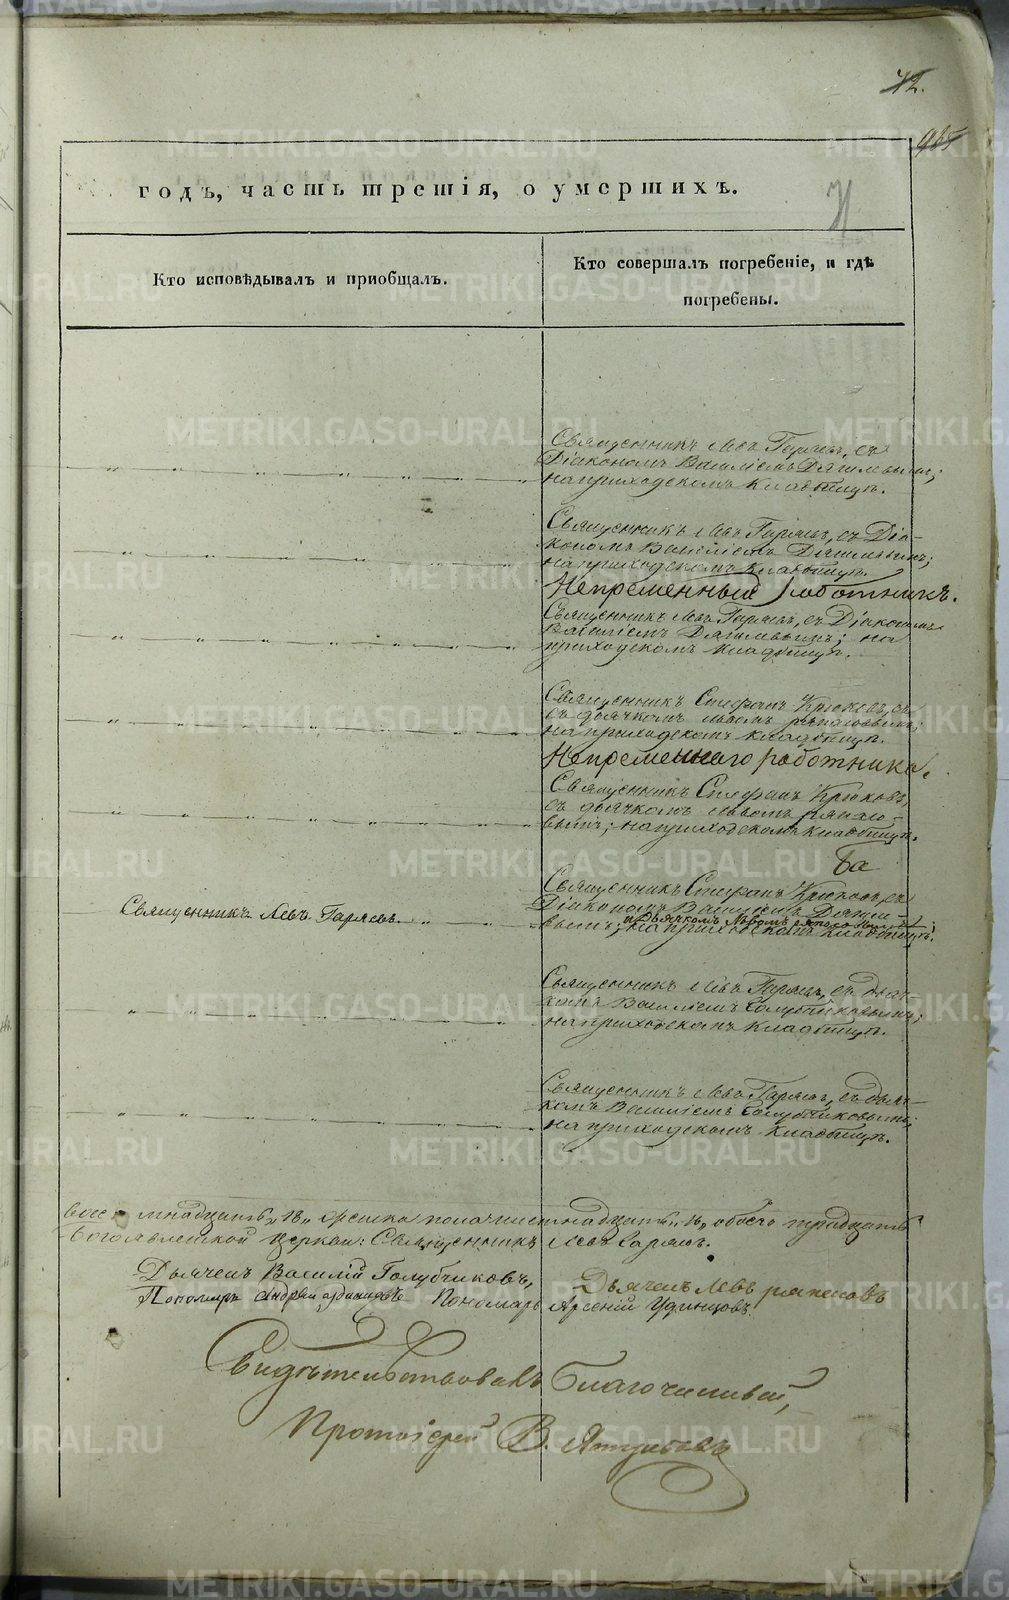 42.
935
годъ, часть третія, о умершихъ.
Кто исповѣдывалъ и приобщалъ.
Кто совершалъ погребеніе, и гдѣ
погребены.
Священникъ Левъ Гаряевъ, съ
Діакономъ Василіемъ
на приходскомъ кладбищѣ.
Священникъ Левъ Гаряевъ, съ Діа-
кономъ Василіемъ
на приходскомъ кладбищѣ.
Непременный работникъ.
Священникъ Левъ Гаряевъ, съ Діакономъ
Василіемъ на
приходскомъ кладбищѣ.
Священникъ Стефанъ Крюковъ, съ
съ дьячкомъ Львомъ
на приходскомъ кладбищѣ.
Непременнаго работника.
Священникъ Стефанъ Крюковъ,
съ дьячкомъ Львомъ
вымъ; на приходскомъ кладбищѣ.
Священникъ Левъ Гаряевъ
Священникъ Стефанъ Крюковъ, съ
Діакономъ Василіемъ
и Дьячкомъ Львомъ
вымъ; на приходскомъ кладбищѣ.
Священникъ Левъ Гаряевъ, съ дьяч-
комъ Василіемъ Голубчиковымъ;
на приходскомъ кладбищѣ.
Священникъ Левъ Гаряевъ, съ дьяч-
комъ Василіемъ Голубчиковымъ;
на приходскомъ кладбищѣ.
восемнадцать „18„ женска пола обоего тридцать
Богоявленской церкви: Священникъ Левъ Гаряевъ.
Дьячекъ Василій Голубчиковъ,
Дьячекъ Левъ
Пономарь Андрей Пономарь Арсеній Удинцовъ.
Свидѣтельствовалъ Благочинный,
Протоіерей В.
METRIKI.GASO-URAL.RU